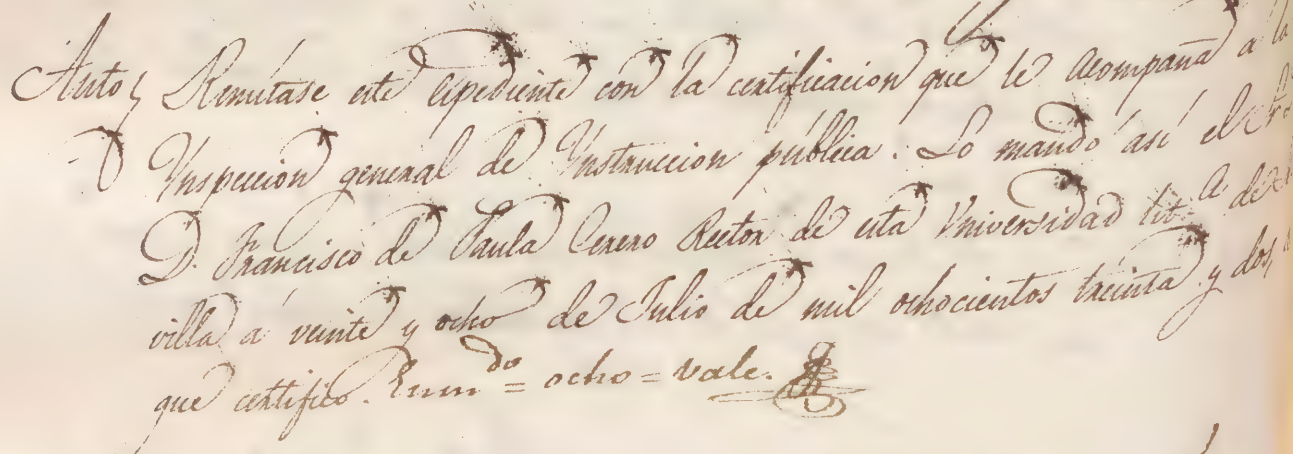 Auto, Remítase este expediente con la certificacion que le acompaña a la
Inspeccion general de Instruccion pública. Lo mandó así el
D. Francisco de Paula Cerero Rector de esta Universidad lit.ª de
villa á veinte y ocho de Julio de mil ochocientos treinta y dos,
que certifico. Enmdo = ocho = vale.